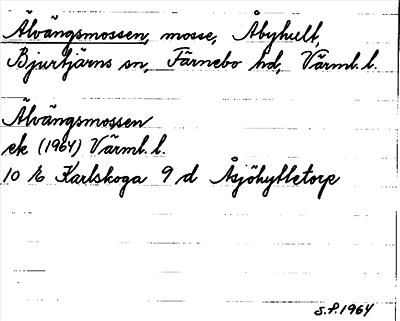 Älvängsmossen, mosse, Åbyhult,
Bjurtjärns sn, Färnebo hd, Värml. l.
Älvängsmossen
ek (1964) Värml. l.
10 E Karlskoga 9 d Åsjöhyttetorp
S.f. 1964